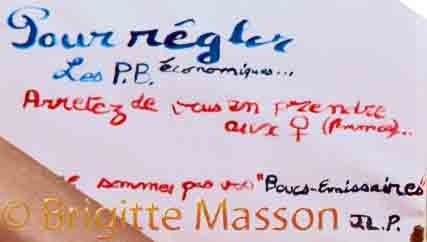 Pour régler
Les P.B. économiques...
Arretez de vous en prendre
aux ♀ (femmes)...
sommes pas vos "Boucs-Emissaires"
© Brigitte Masson J.L.P.